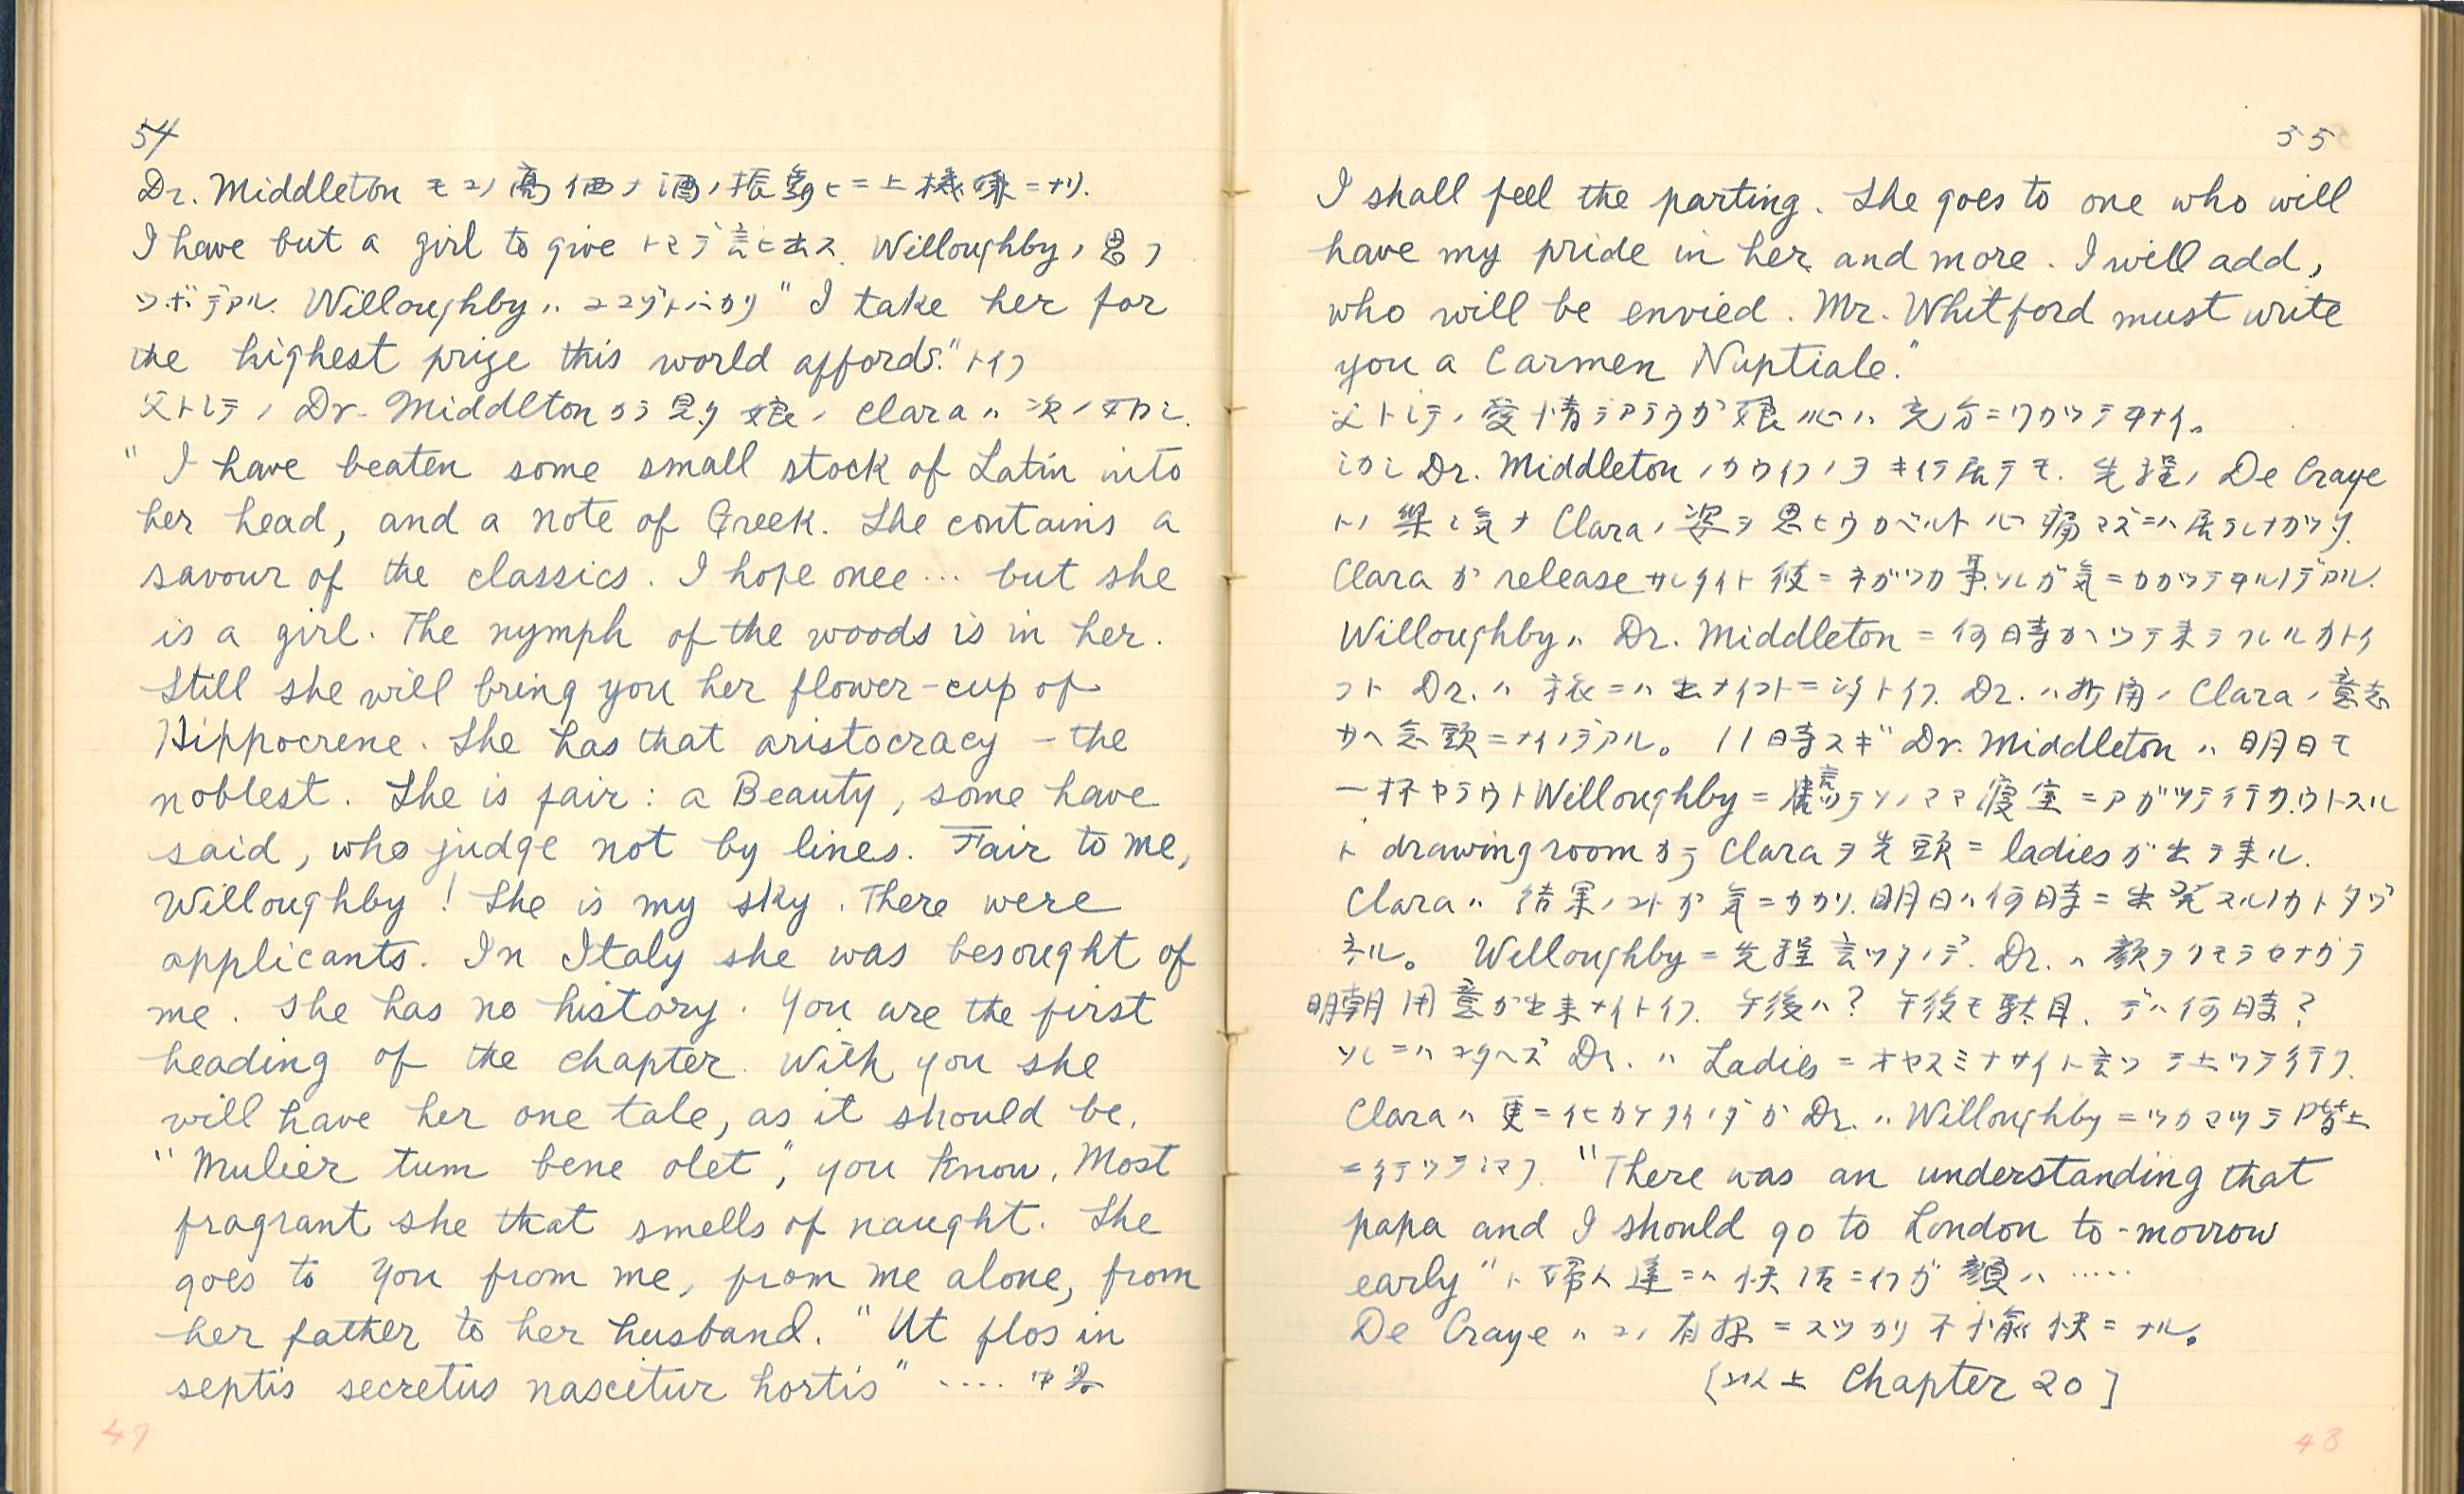 54
Dr. Middleton モコノ高価ナ酒ノ振舞ヒニ上機嫌ニナリ.
I have but a girl to give トマデ言ヒ出ス. Willoughby ノ思フ
ツボデアル. Willoughby ハココゾトバカリ " I take her for
the highest prize this world affords." トイフ
父トシテノ Dr. Middlton カラ見タ娘ノ Clara ハ次ノ如シ.
" I have beaten some small stock of Latin into
her head, and a note of Greek. She contains a
savour of the classics. I hope once ... but she
is a girl. The nymph of the woods is in her.
Still she will bring you her flower-cup of
Hippocrene. She has that aristocracy - the
noblest. She is fair: a Beauty, some have
said, who judge not by lines. Fair to me,
Willoughby! She is my sky. There were
applicants. In Italy she was besought of
me. She has no history. You are the first
heading of the chapter. With you she
will have her one tale, as it should be.
"Mulier tum bene olet", you know. Most
fragrant she that smells of naught. She
goes to you from me, from me alone, from
her father to her husband. "Ut flos in
septis secretus nascitur hortis" .... 中畧
47
55
I shall feel the parting. She goes to one who will
have my pride in her and more. I will add,
who will be envied. Mr. Whitford must write
you a Carmen Nuptiale."
父トシテノ愛情デアラウガ娘ノ心ハ充分ニワカツテヰナイ。
シカシ Dr. Middleton ノカウイフノヲキイテ居テモ. 先程ノ De Craye
トノ楽シ気ナ Clara ノ姿ヲ思ヒウカベルト心痛マズニハ居ラレナカツタ.
Clara ガ release サレタイト彼ニネガツタ事. ソレガ気ニカカツテヰルノデアル.
Willoughby ハ Dr. Middleton ニ何時カヘツテ来ラレルカトイ
フト Dr. ハ旅ニハ出ナイコトニシタトイフ. Dr. ハ折角ノ Clara ノ意志
サヘ念頭ニナイノデアル。 11時スギ Dr. Middleton ハ明日モ
一杯ヤラウト Willoughby ニ ツテソノママ寝室ニアガツテ行カウトスル
ト drawing room カラ Clara ヲ先頭ニ ladies ガ出テ来ル.
Clara ハ結果ノコトガ気ニカカリ. 明日ハ何時ニ出発スルノカトタヅ
ネル。 Willoughby ニ先程言ツタノデ. Dr. ハ顔ヲクモラセナガラ
明朝用意ガ出来ナイトイフ. 午後ハ? 午後モ駄目. デハ何時?
ソレニハコタヘズ Dr. ハ Ladies ニオヤスミナサイト言ツテ上ツテ行ク.
Clara ハ更ニ Dr. ハ Willoughby ニツカマツテ階上
ニ行ツテシマフ. "There was an understanding that
papa and I should go to London to-morrow
early" ト婦人達ニハ快活ニイフガ顔ハ .....
De Craye ハコノ有様ニスツカリ不愉快ニナル。
[以上 Chapter 20]
48